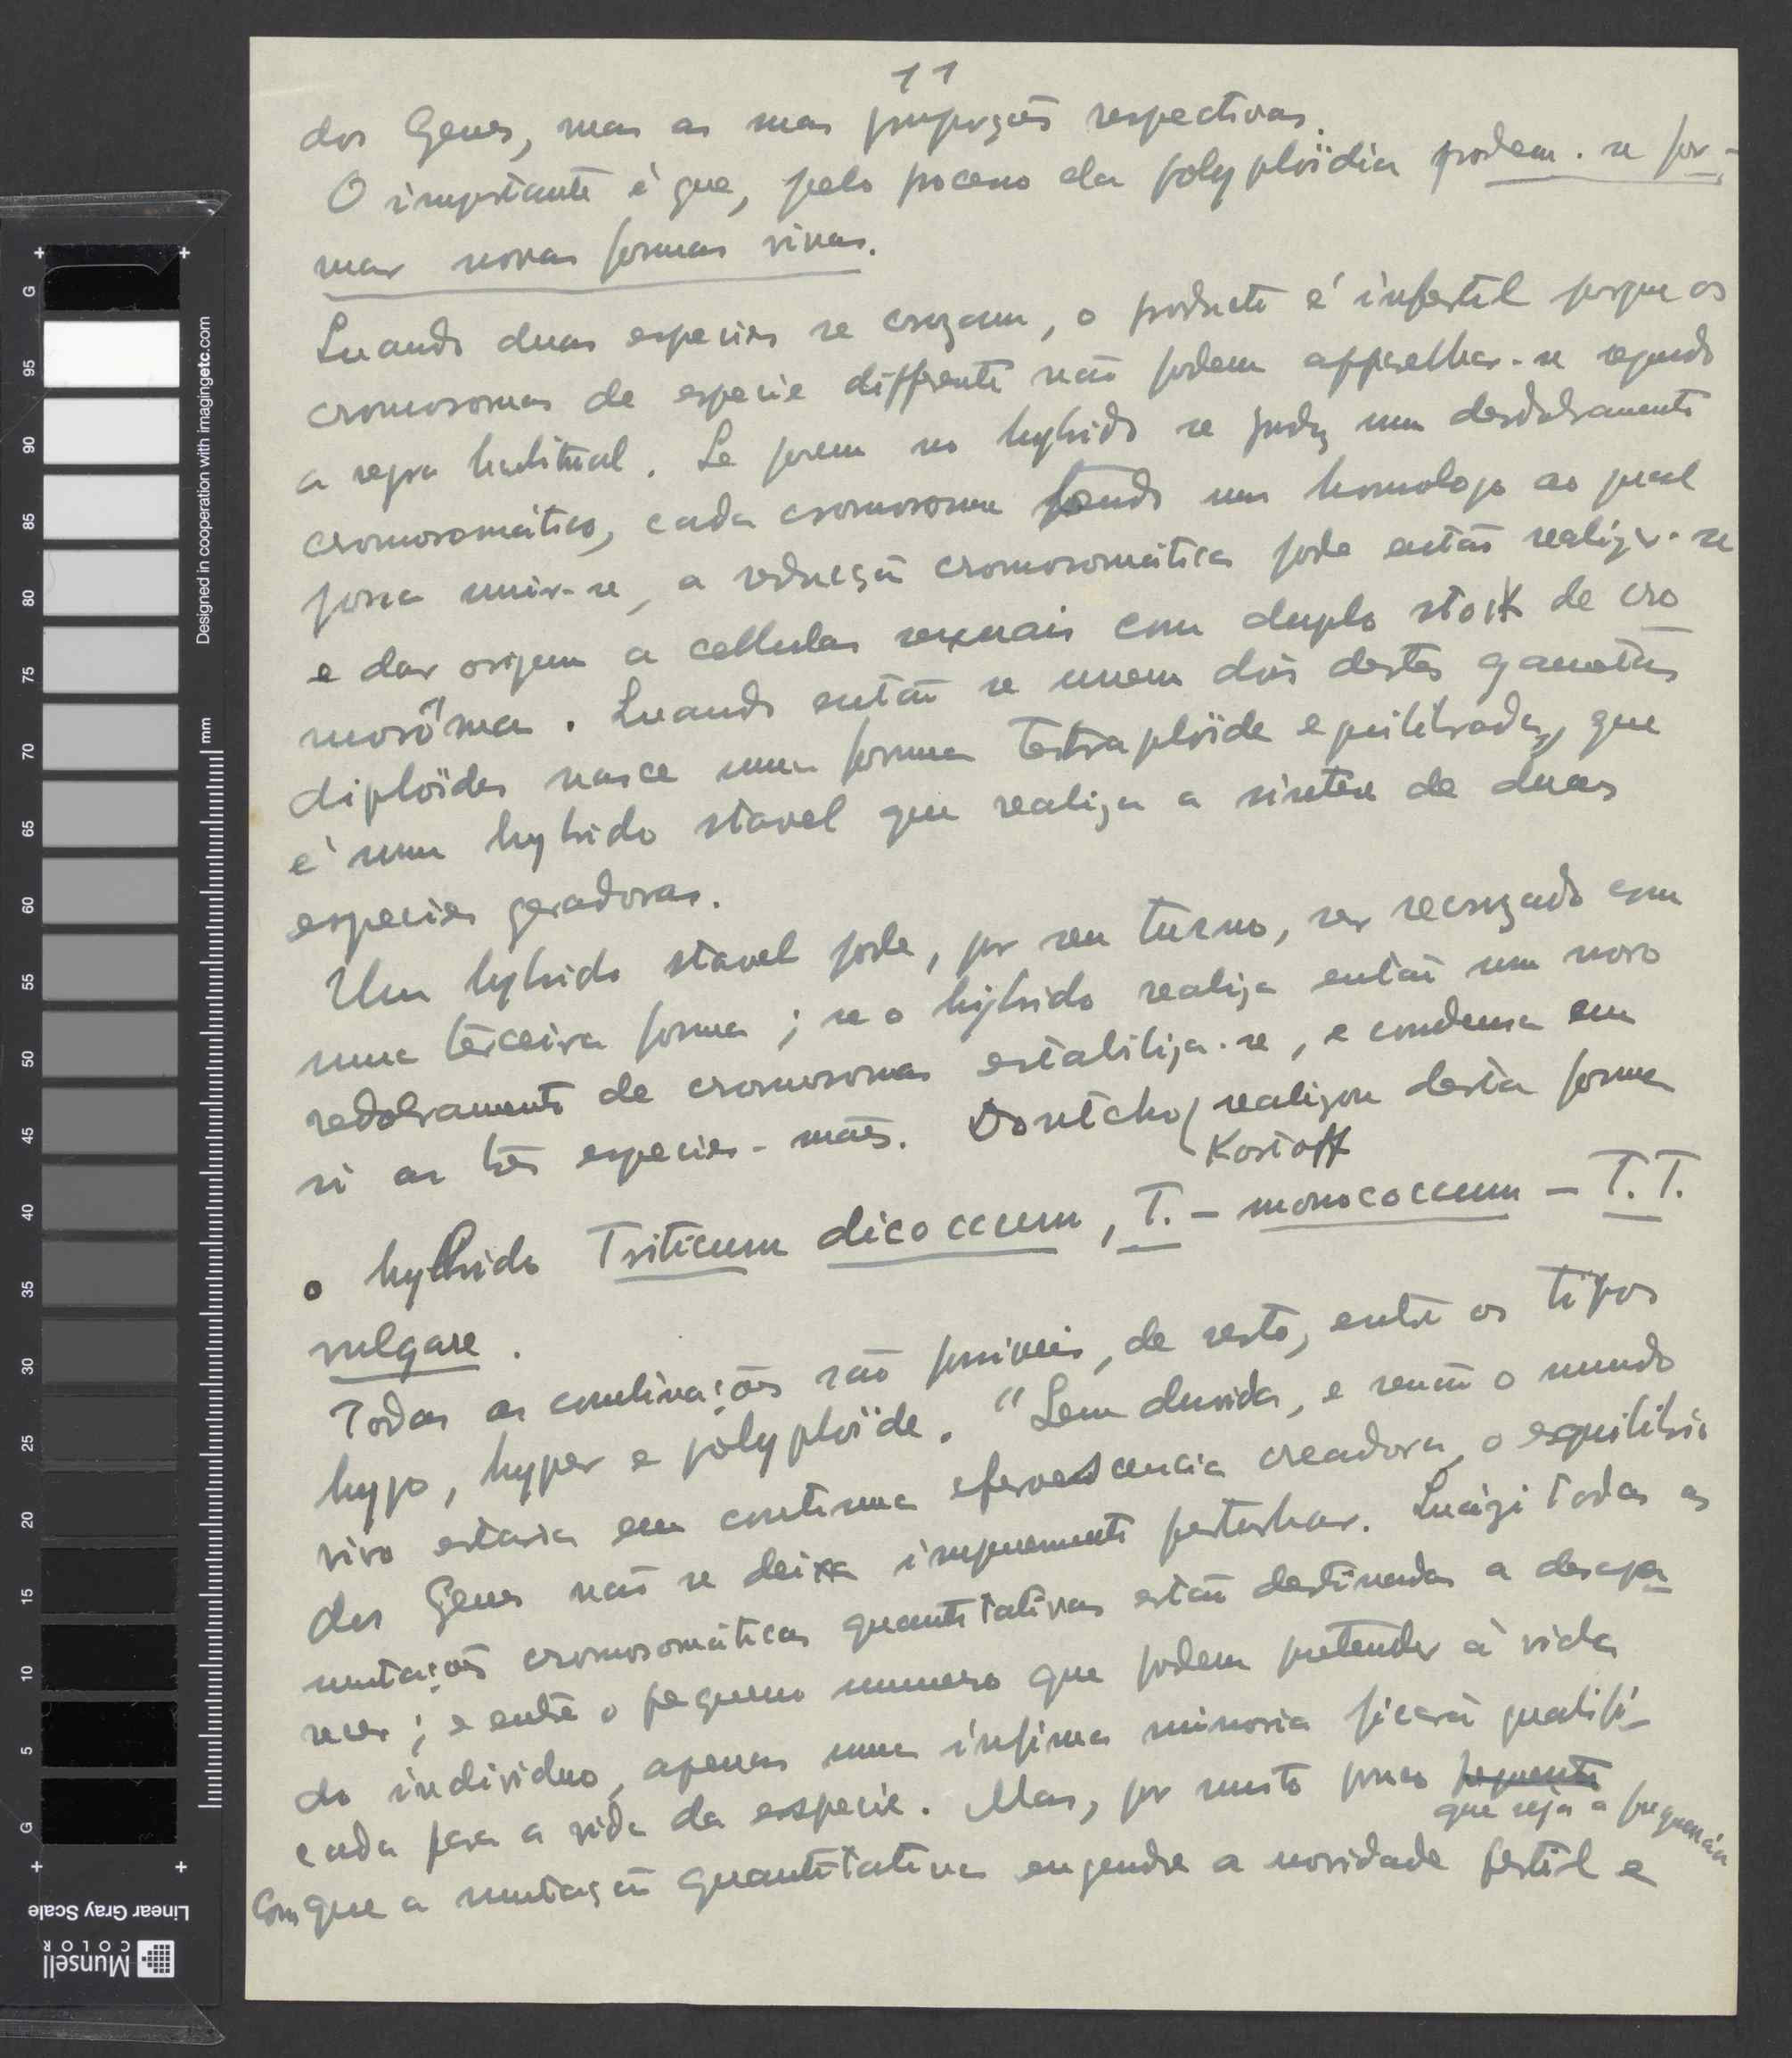 11
dos Genes, mas as suas proporções respectivas.
O importante é que, pelo processo da polyploïdia podem-se for-
mar novas formas vivas.
Quando duas especies se cruzam, o producto é infertil porque os
cromosomas de especie differente não podem apparelhar-se segundo
a regra habitual. Se porem no hybrido se produz um desdobramento
cromosomático, cada cromosoma tendo um homologo ao qual
possa unir-se, a reducção cromosomática pode então realizar-se
e dar origem a cellulas sexuais com duplo stock de cro
mosôma. Quando então se unem dois destes gametas
diploïdes nasce uma forma Tetraploïde equilibrada, que
é um hybrido stavel que realiza a sintese de duas
especies geradoras.
Um hybrido stavel pode, por seu turno, ser recruzado com
uma terceira forma; se o hybrido realiza então um novo
redobramento de cromosomas estabiliza-se, e condensa em
si as três especies-mães. Dontcho realizou desta forma
Kostoff
o hybrido Triticum dicoccum, T. - monococcum - T. T.
vulgare.
Todas as combinações são possiveis, de resto, entre os tipos
hypo, hyper e polyploïde. "Sem duvida, e senão o mundo
vivo estaria em continua efervescencia creadora, o equilibrio
dos Genes não se deixa impunemente perturbar. Quázi todas as
mutações cromosomáticas quantitativas estão destinadas a desapa
recer; e entre o pequeno numero que podem pretender à vida
do individuo, apenas uma infima minoria ficará qualifi-
cada para a vida da especie. Mas, por muito pouco frequente
que seja a frequencia
Com que a mutação quantitativa engendre a novidade fertil e
G
95
90
85
80
75
70
65
60
55
50
45
40
35
30
25
20
15
10
5
G
Designed in cooperation with imagingetc.com
mm
Linear Gray Scale
Munsell
COLOR